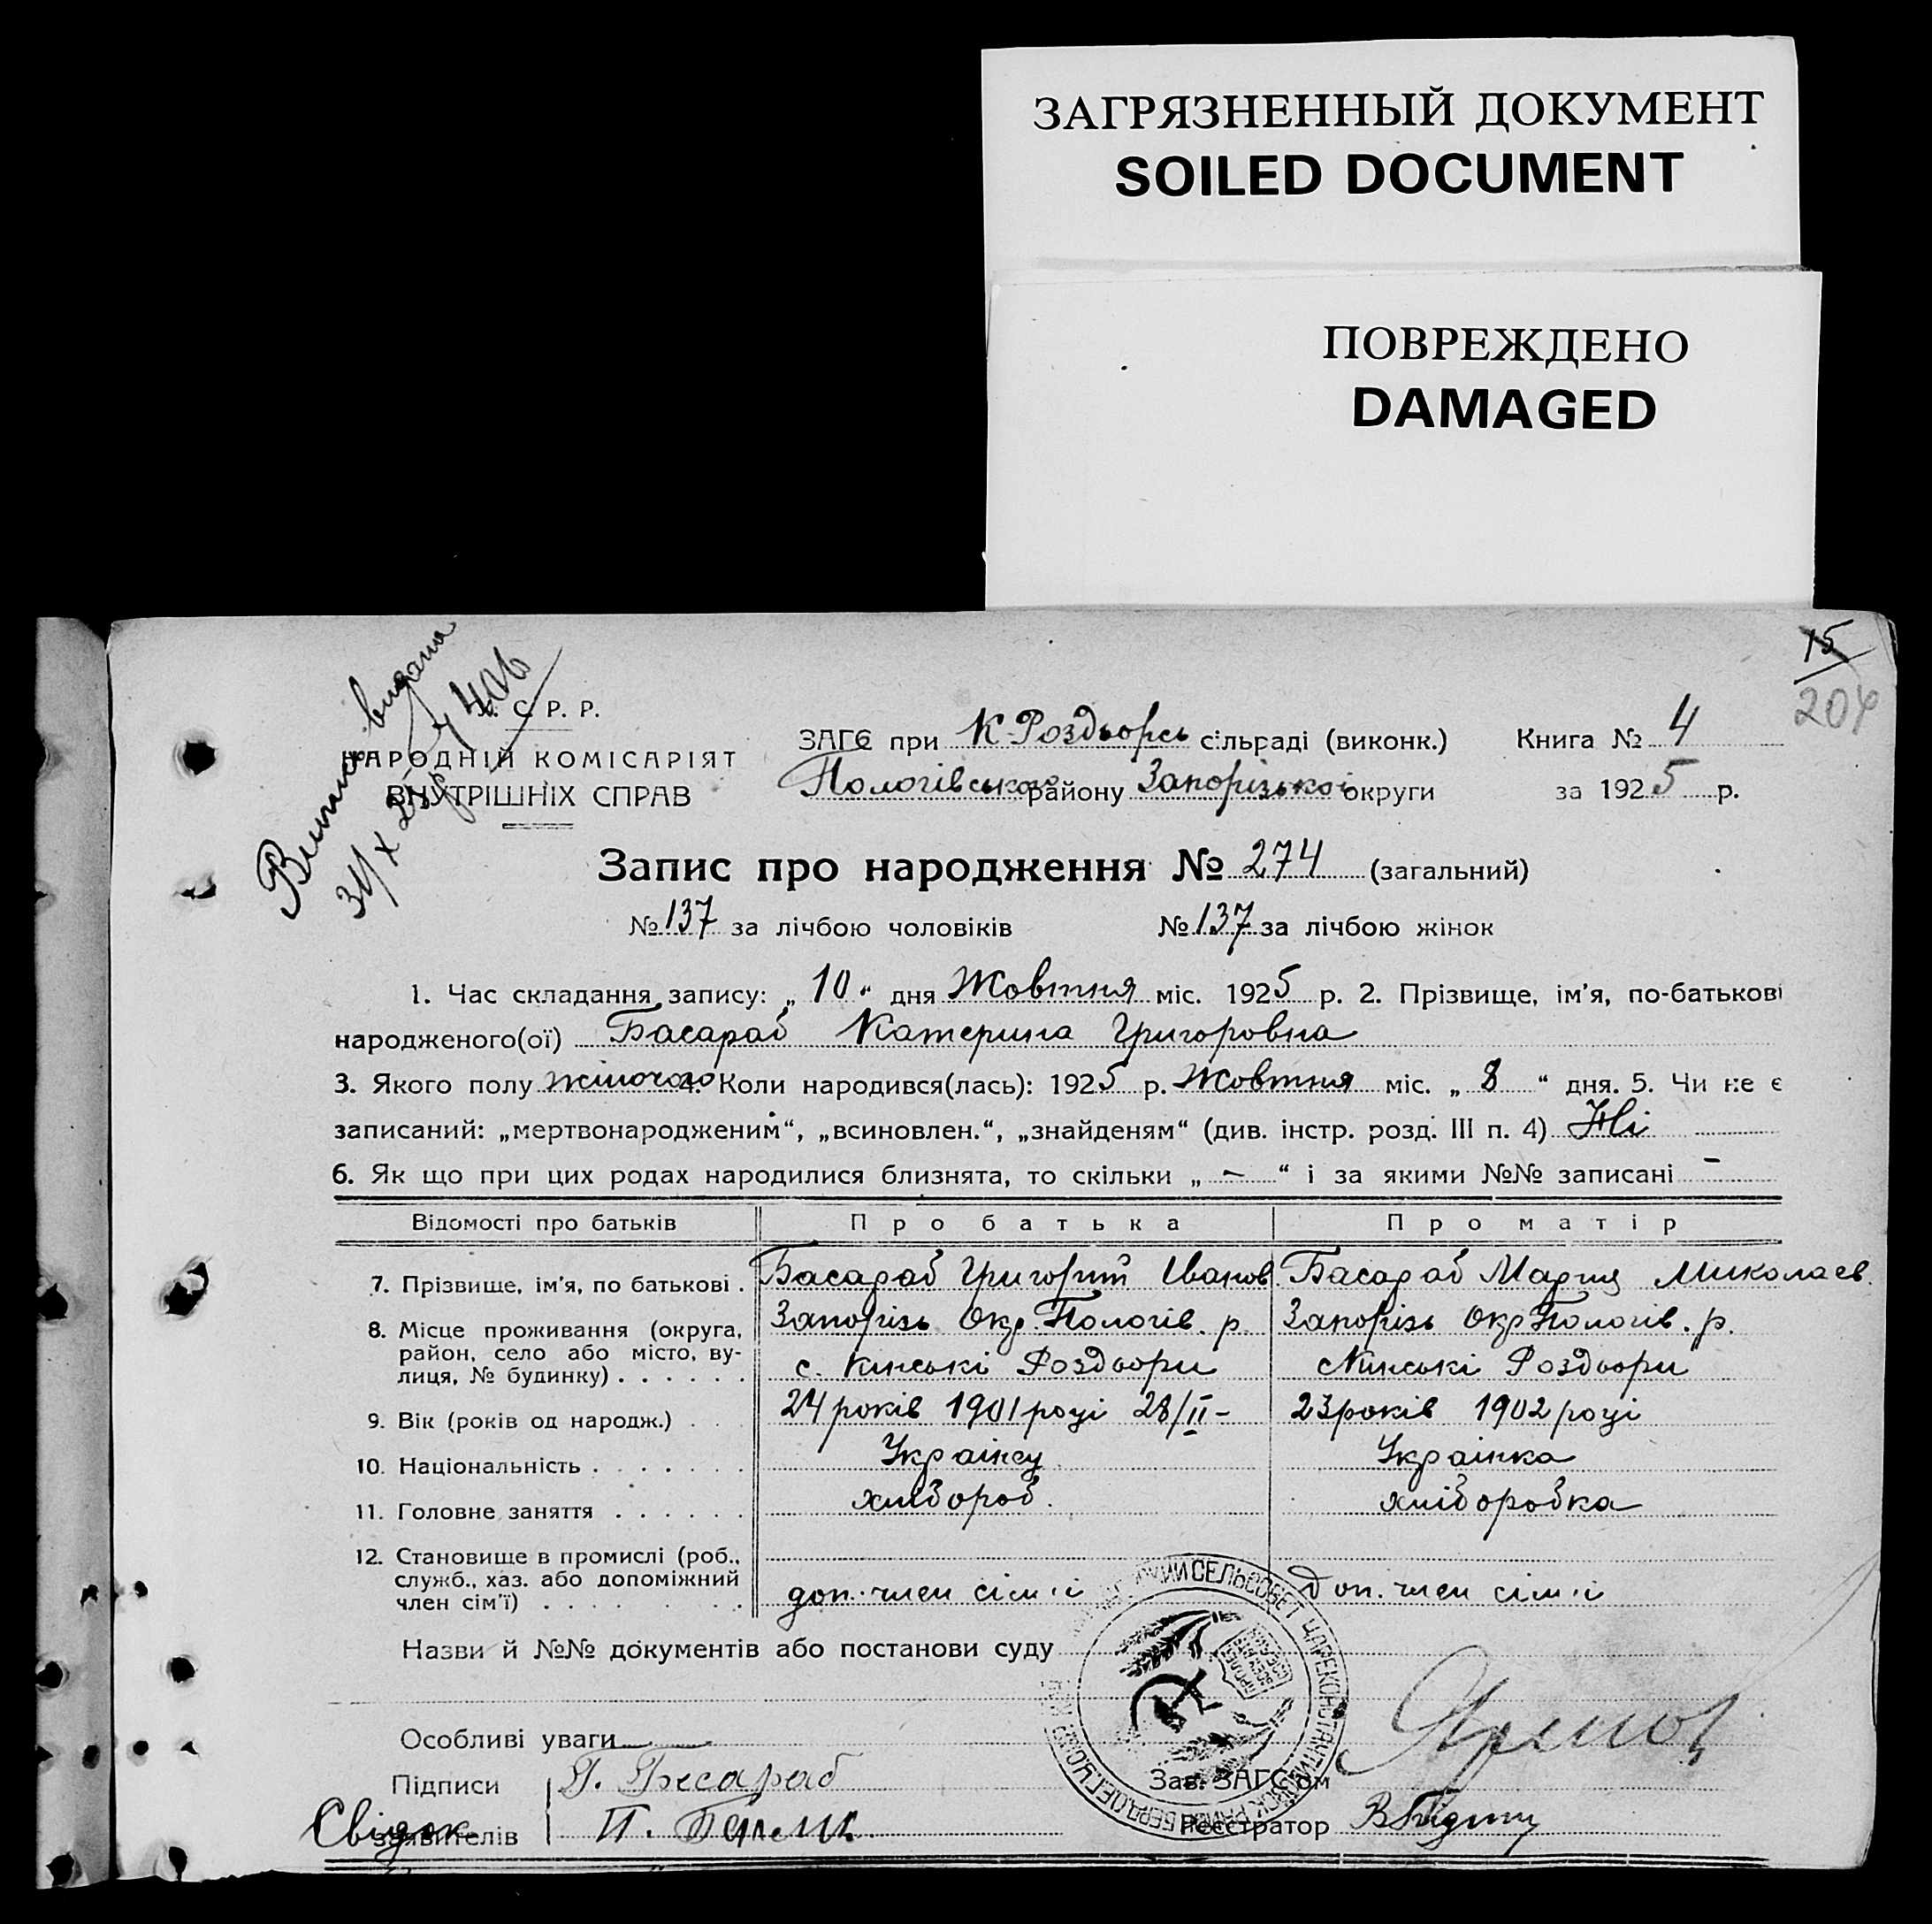 ЗАГРЯЗНЕННЫЙ ДОКУМЕНТ
SOILED DOCUMENT
ПОВРЕЖДЕНО
DAMAGED
15
204
Випис видана
31/X 25 р. 406
У. С. Р. Р.
НАРОДНІЙ КОМІСАРІЯТ
ВНУТРІШНІХ СПРАВ
ЗАГС при К-Роздорсь сільраді (виконк.) Книга № 4
Пологівського району Запорізької округи за 1925 р.
Запис про народження № 274 (загальний)
№ 137 за лічбою чоловіків № 137 за лічбою жінок
1. Час складання запису: „10“ дня Жовтня міс. 1925 р. 2. Прізвище, ім'я, по-батькові
народженого(ої) Басараб Катерина Григоровна
3. Якого полу жіночого 4. Коли народився(лась): 1925 р. Жовтня міс. „8“ дня. 5. Чи не є
записаний: „мертвонародженим“, „всиновлен.“, „знайденям“ (див. інстр. розд. III п. 4) Ні
6. Як що при цих родах народилися близнята, то скільки „ — “ і за якими №№ записані —
Відомості про батьків Про батька Про матір
7. Прізвище, ім'я, по батькові . Басараб Григорій Іванов. Басараб Мария Миколаєв.
8. Місце проживання (округа, район, село або місто, вулиця, № будинку) . . . . . . Запорізь Окр. Пологів. р. с. Кінські Роздори Запорізь Окр Пологів. р. с Кінські Роздори
9. Вік (років од народж.) . . 24 років 1901 році 28/II - 23 років 1902 році
10. Національність . . . . . . . Українец Українка
11. Головне заняття . . . . . . хлібороб. хліборобка
12. Становище в промислі (роб., служб., хаз. або допоміжний член сім'ї) . . . . . . . . доп. член сім'ї доп. член сім'ї
Назви й №№ документів або постанови суду
СЕЛЬСОВЕТ ЦАРЕКОНСТАНТИНОВСК РАЙОНА БЕРДДЕГ УСОЮЗ
Особливі уваги
Підписи Г. Басараб
Зав. ЗАГС'ом
Свідок
заявителів П.
Реєстратор